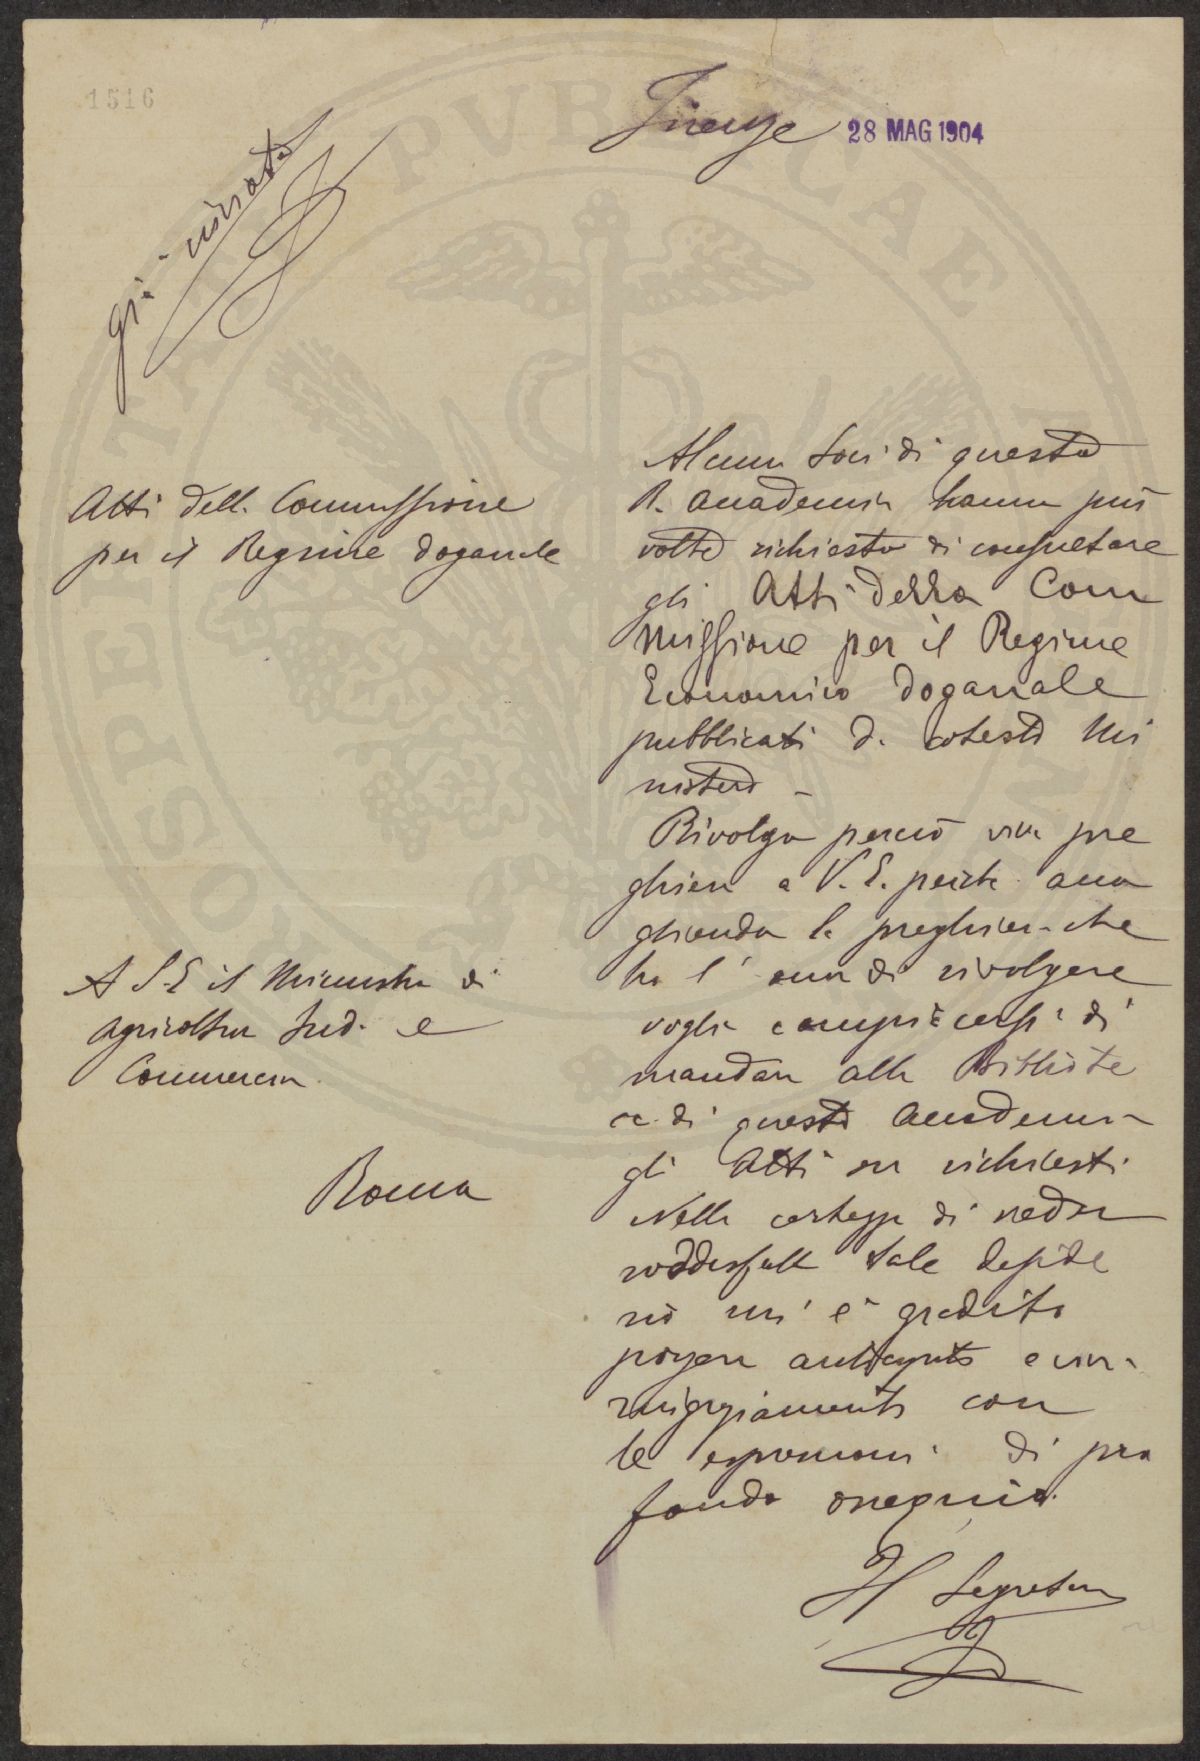 1516
Firenze 28 MAG 1904
già
Atti della Commissione
per il Regime doganale
A S. E. il Ministro di
Agricoltura Ind. e
Commercio
Roma
Alcuni Soci di questa
R. Accademia hanno più
volte richiesto di consultare
gli Atti della Com
missione per il Regime
Economico doganale
pubblicati da cotesto Mi
nistero –
Rivolgo perciò viva pre
ghiera a V. E. perchè acco
gliendo la preghiera che
ho l'onor di rivolgere
voglia compiacersi di
mandare alla Bibliote
ca di questa Accademia
gli Atti ora richiesti.
Nella certezza di veder
soddisfatto tale deside
rio mi è gradito
porgere anticipati e vivi
ringraziamenti con
le espressioni di pro
fondo ossequio.
Il Segretario